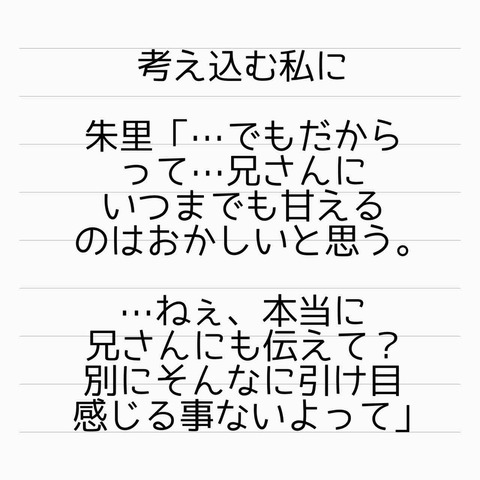 考え込む私に
朱里「…でもだから
って…兄さんに
いつまでも甘える
のはおかしいと思う。
…ねぇ、本当に
兄さんにも伝えて？
別にそんなに引け目
感じる事ないよって」